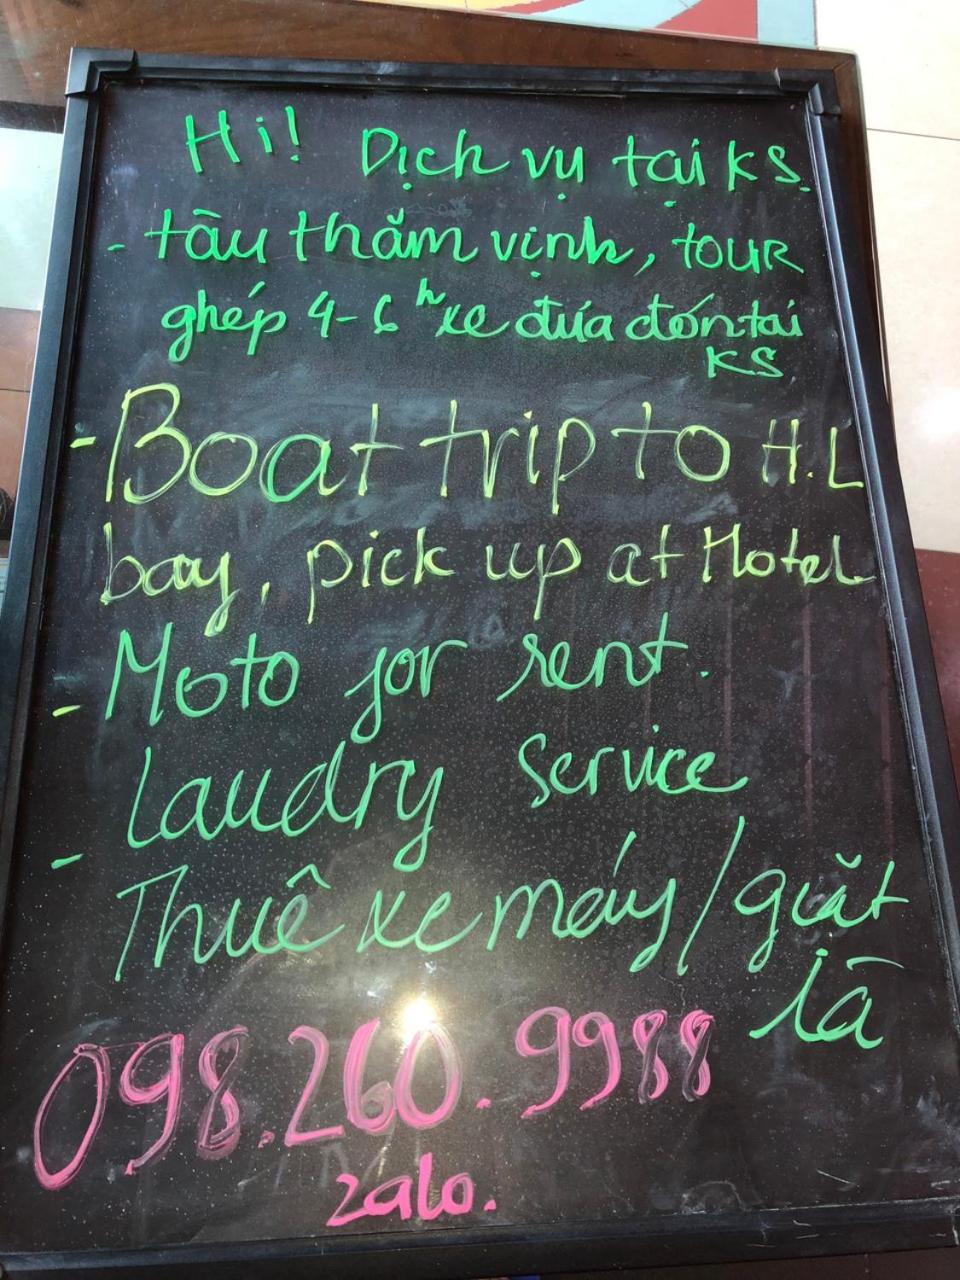 Hi! Dịch vụ tại KS.
- tàu thăm vịnh, TOUR
ghép 4-6h xe đưa đón tại
KS
- Boat trip to H.L
bay, pick up at Hotel
- Moto for rent.
Laudry Service
- Thuê xe máy/giặt
là
098.260.9988
zalo.